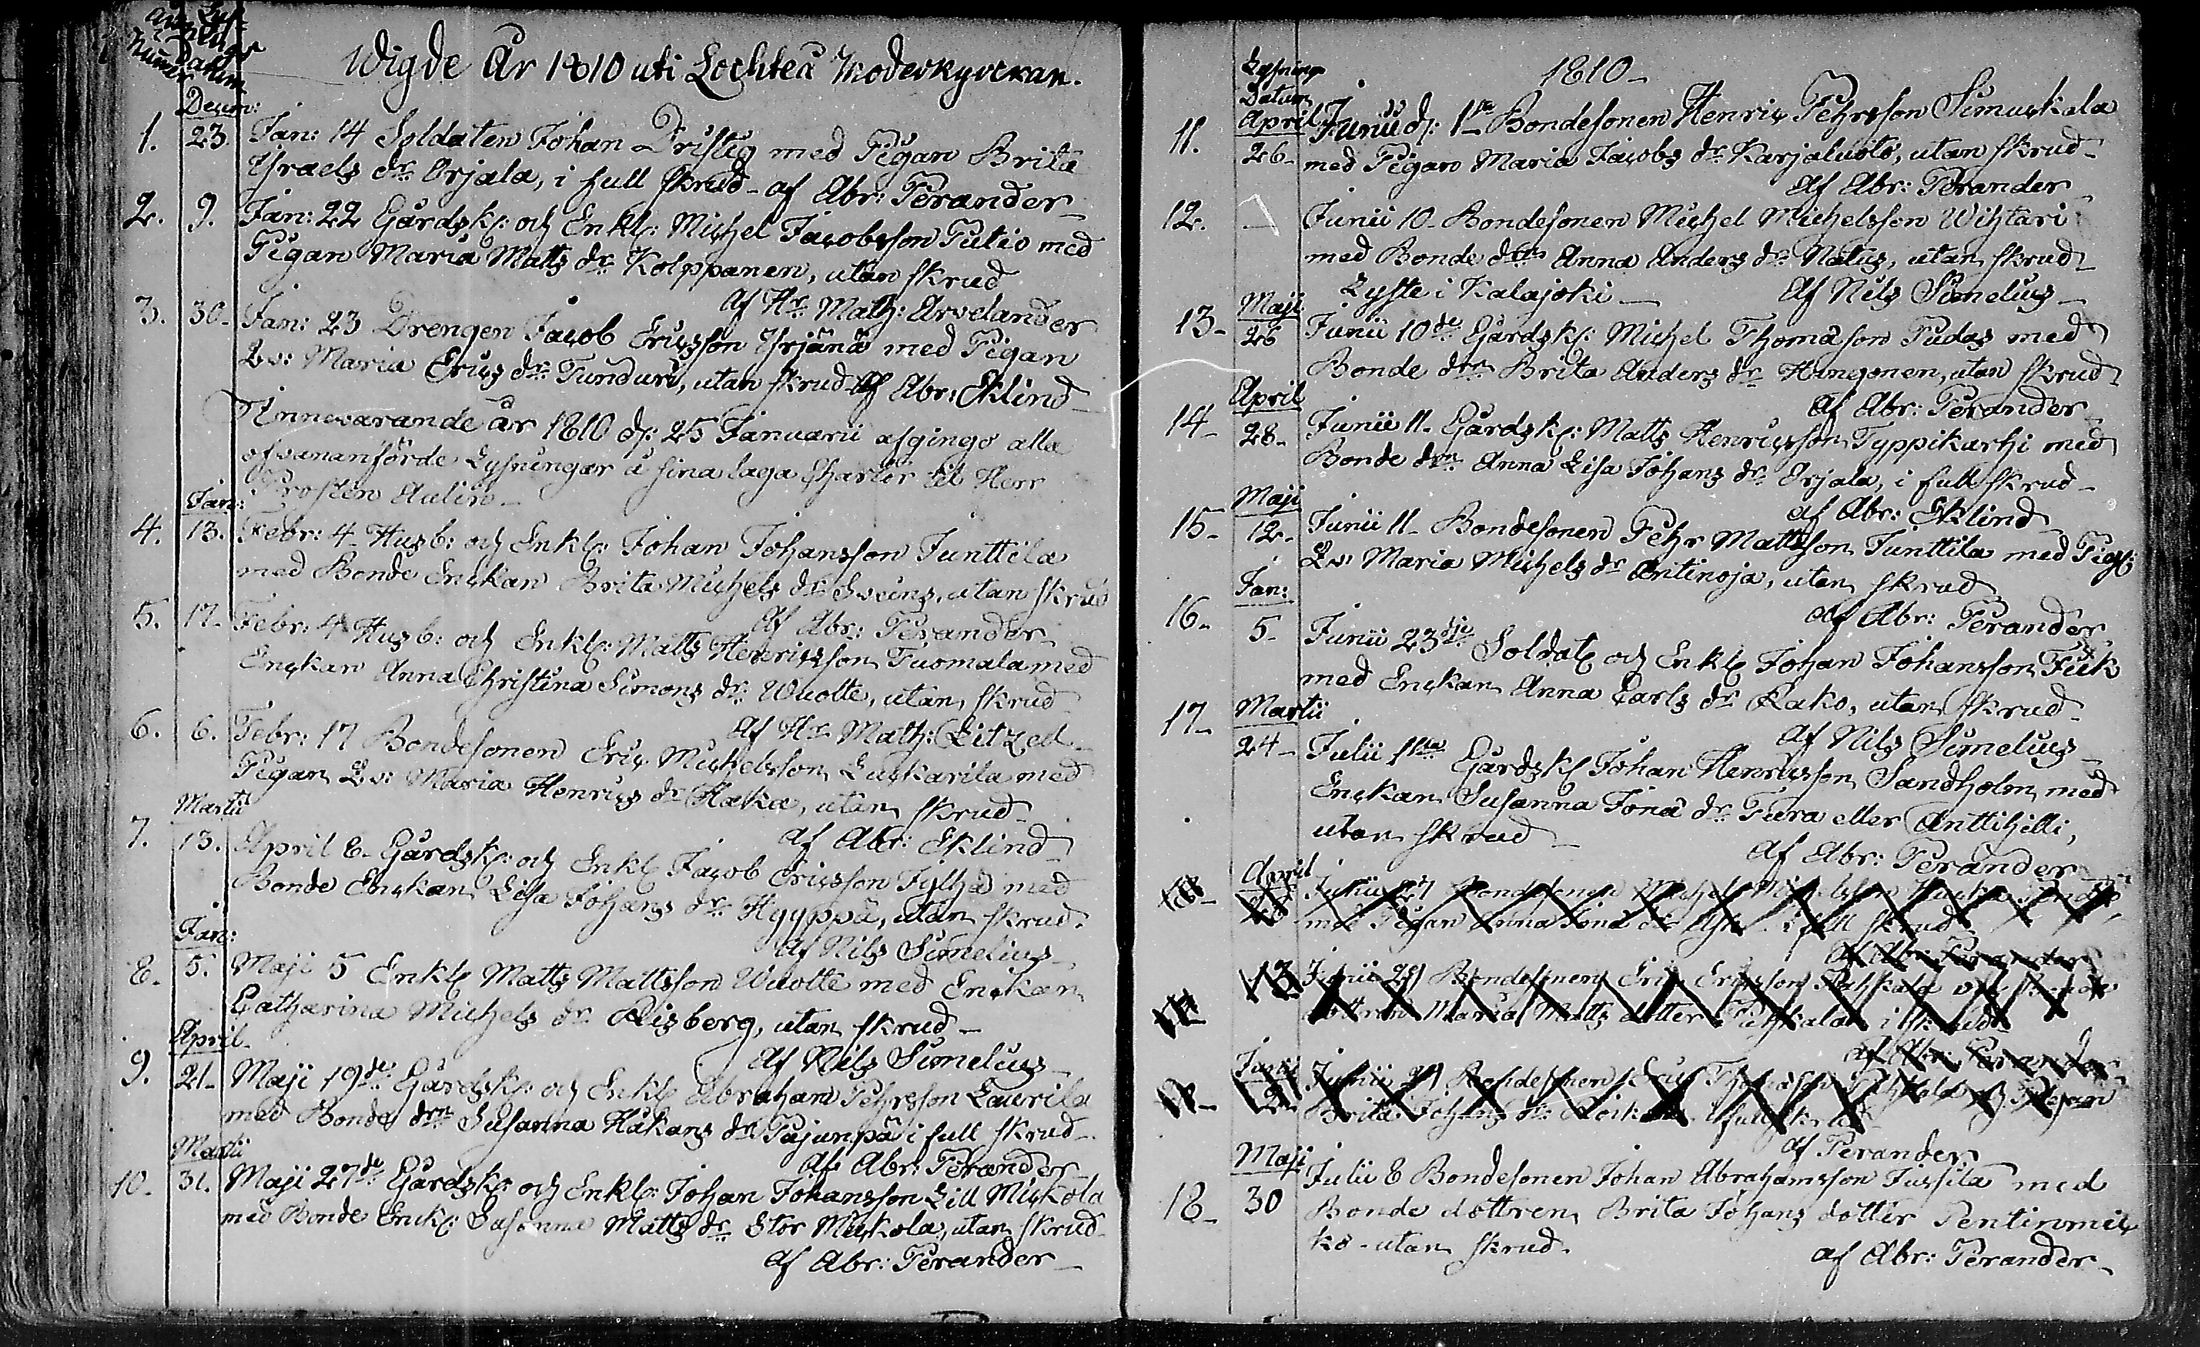 Wigde År 1810 uti Lochteå Moderkyrckan.
Datum
Decem:
1. 23. Jan: 14 Soldaten Johan Dristig med Pigan Brita
Israels dr Orjala, i full skrud - af Abr: Perander
2. 9. Jan: 22 Gårdsk: och Enkl: Michel Jacobsson Putio med
Pigan Maria Matts dr Kolppanen, utan skrud
af Hr Math: Arvelander
3. 30. Jan: 23 Drengen Jacob Ericsson Yrjänä med Pigan
Lv: Maria Erics dr Tunduri, utan skrud af Abr: Eklind
Innevarande år 1810 d: 25 Januarii afgingo alla
ofvananförde Lysningar å sina laga Charter til Herr
Prosten Aulin
Jan:
4. 13. Febr: 4 Husb: och Enkl: Johan Johansson Junttila
med Bonde Enckan Brita Michels dr Sveins, utan skrud
af Abr: Perander
5. 17. Febr: 4 Husb: och Enkl: Matts Henricsson Tuomala med
Enckan Anna Christina Simons dr Wuolte, utan skrud
af Hr Math: Litzell
6. 6. Febr: 17 Bondesonen Eric Michelsson Luckarila med
Pigan Lv: Maria Henrics dr Haka, utan skrud
af Abr: Eklind
Martii
7. 13. April 8. Gårdsk: och Enkl: Jacob Ericsson Jylhä med
Bonde Enckan Lisa Johans dr Hyyppä, utan skrud.
af Nils Simelius
Jan:
8. 5. Maji 5 Enkl: Matts Mattsson Wuolte med Enckan
Catharina Michels dr Risberg, utan skrud
af Nils Simelius
April
9. 21. Maji 19de Gårdsk: och Enkl: Abraham Pehrsson Laurila
med Bonde drn Susanna Håkans dr Pajunpä i full skrud
af Abr: Perander
Martii
10. 31. Maji 27de Gårdsk: och Enkl: Johan Johansson Lill Mickola
med Bonde Enck: Susanna Matts dr Stor Mickola, utan skrud
af Abr: Perander
1810
Lysnings
Datum
April
11. 26 Junii d: 1sta Bondesonen Henric Pehrsson Simuskala
med Pigan Maria Jacobs dr Karjaluoto, utan skrud
af Abr: Perander
12. Junii 10 Bondesonen Michel Michelsson Wihtari
med Bonde dtn Anna Anders dr Natus, utan skrud
Lyste i Kalajoki af Nils Simelius
Maji
13 26 Junii 10de Gårdsk: Michel Thomasson Pudas med
Bonde drn Brita Anders dr Hingonen, utan skrud
af Abr: Perander
April
14 28 Junii 11. Gårdsk: Matts Henricsson Typpikarhi med
Bonde drn Anna Lisa Johans dr Orjala, i full skrud
af Abr: Eklind
Maji
15 12 Junii 11 Bondesonen Pehr Mattsson Junttila med Pig:
Lv: Maria Michels dr Antinoja, utan skrud
af Abr: Perander
Jan:
16 5 Junii 23dje Soldat: och Enkl: Johan Johansson Fisk
med Enckan Anna Carls dr Kako, utan skrud
af Nils Simelius
Martii
17 24 Julii 1sta Gårdsk: Johan Henricsson Sandholm med
Enckan Susanna Jona dr Tura eller Anttihelli,
utan skrud
af Abr: Perander
April
Junii 24 Bondesonen Michel
med Pigan Anna full skrud
af Abr: Perander
Junii 24 Bondesonen Eric Ericsson
Maria Matts dotter i skrud
af Abr: Perander
Junii
2 Junii 24 Bondesonen Eric
Brita Johans dr full skrud
af Perander
Maji
18 30 Julii 8 Bondesonen Johan Abrahamsson Jussila med
Bonde dottren Brita Johans dotter Pentinmic
kö - utan skrud
af Abr: Perander